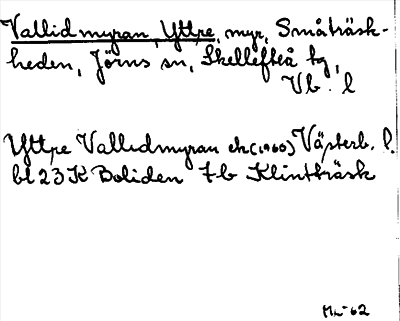 Vallidmyran, Yttre, myr, Småträsk-
heden, Jörns sn, Skellefteå tg,
Vb. l
Yttre Vallidmyran ek (1960) Västerb. l.
bl 23 K Boliden 7b Klintträsk
ML-62